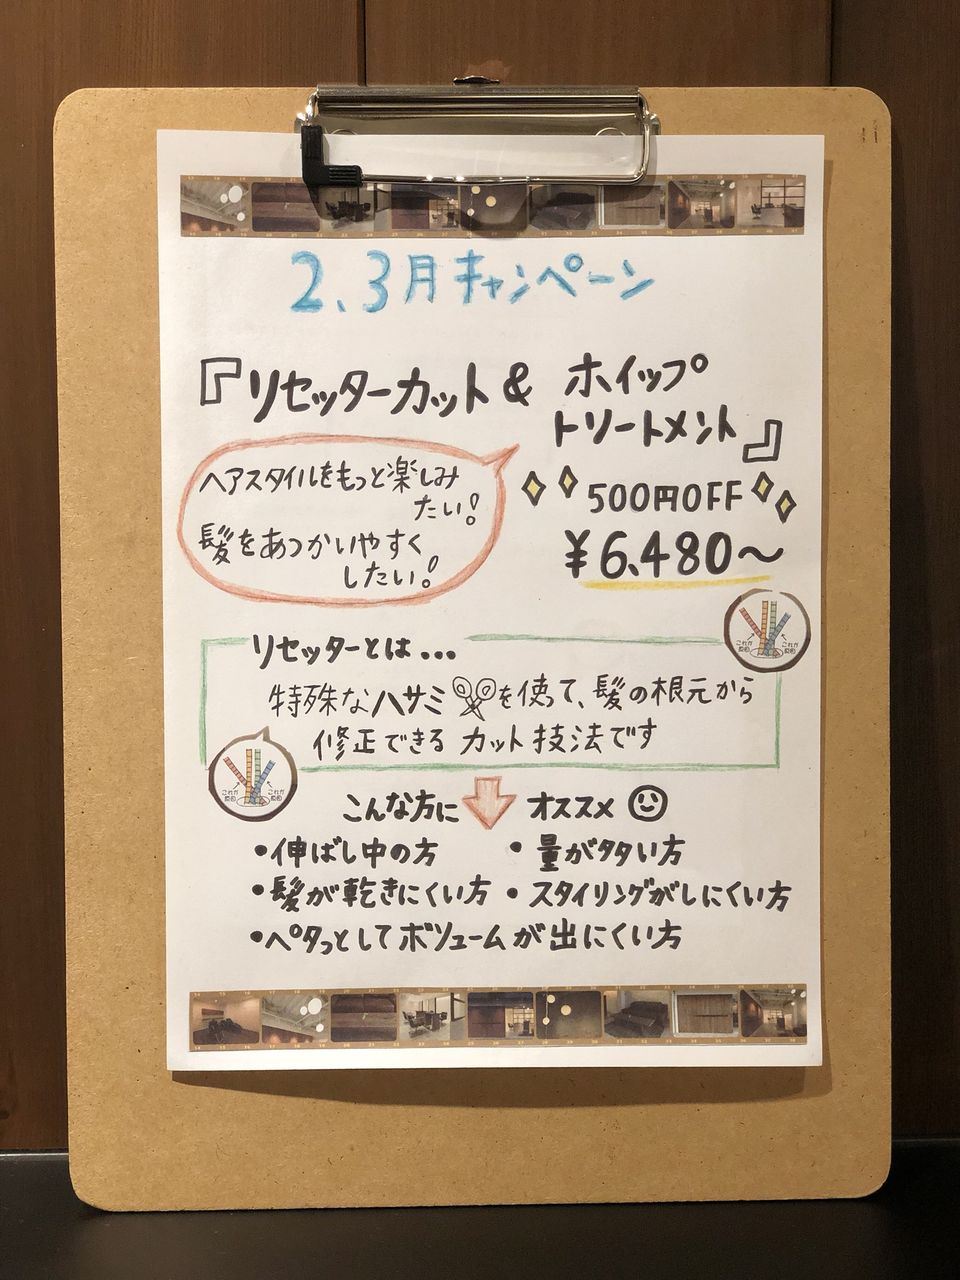 2、3月キャンペーン
『リセッターカット & ホイップ
トリートメント』
ヘアスタイルをもっと楽しみ
たい!
髪をあつかいやすく
したい!
500円OFF
¥6,480〜
リセッターとは...
特殊なハサミを使って、髪の根元から
修正できる カット技法です
これが
原因
これが
原因
これが
原因
これが
原因
こんな方に オススメ
・伸ばし中の方 ・量が多い方
・髪が乾きにくい方 ・スタイリングがしにくい方
・ペタっとしてボリュームが出にくい方